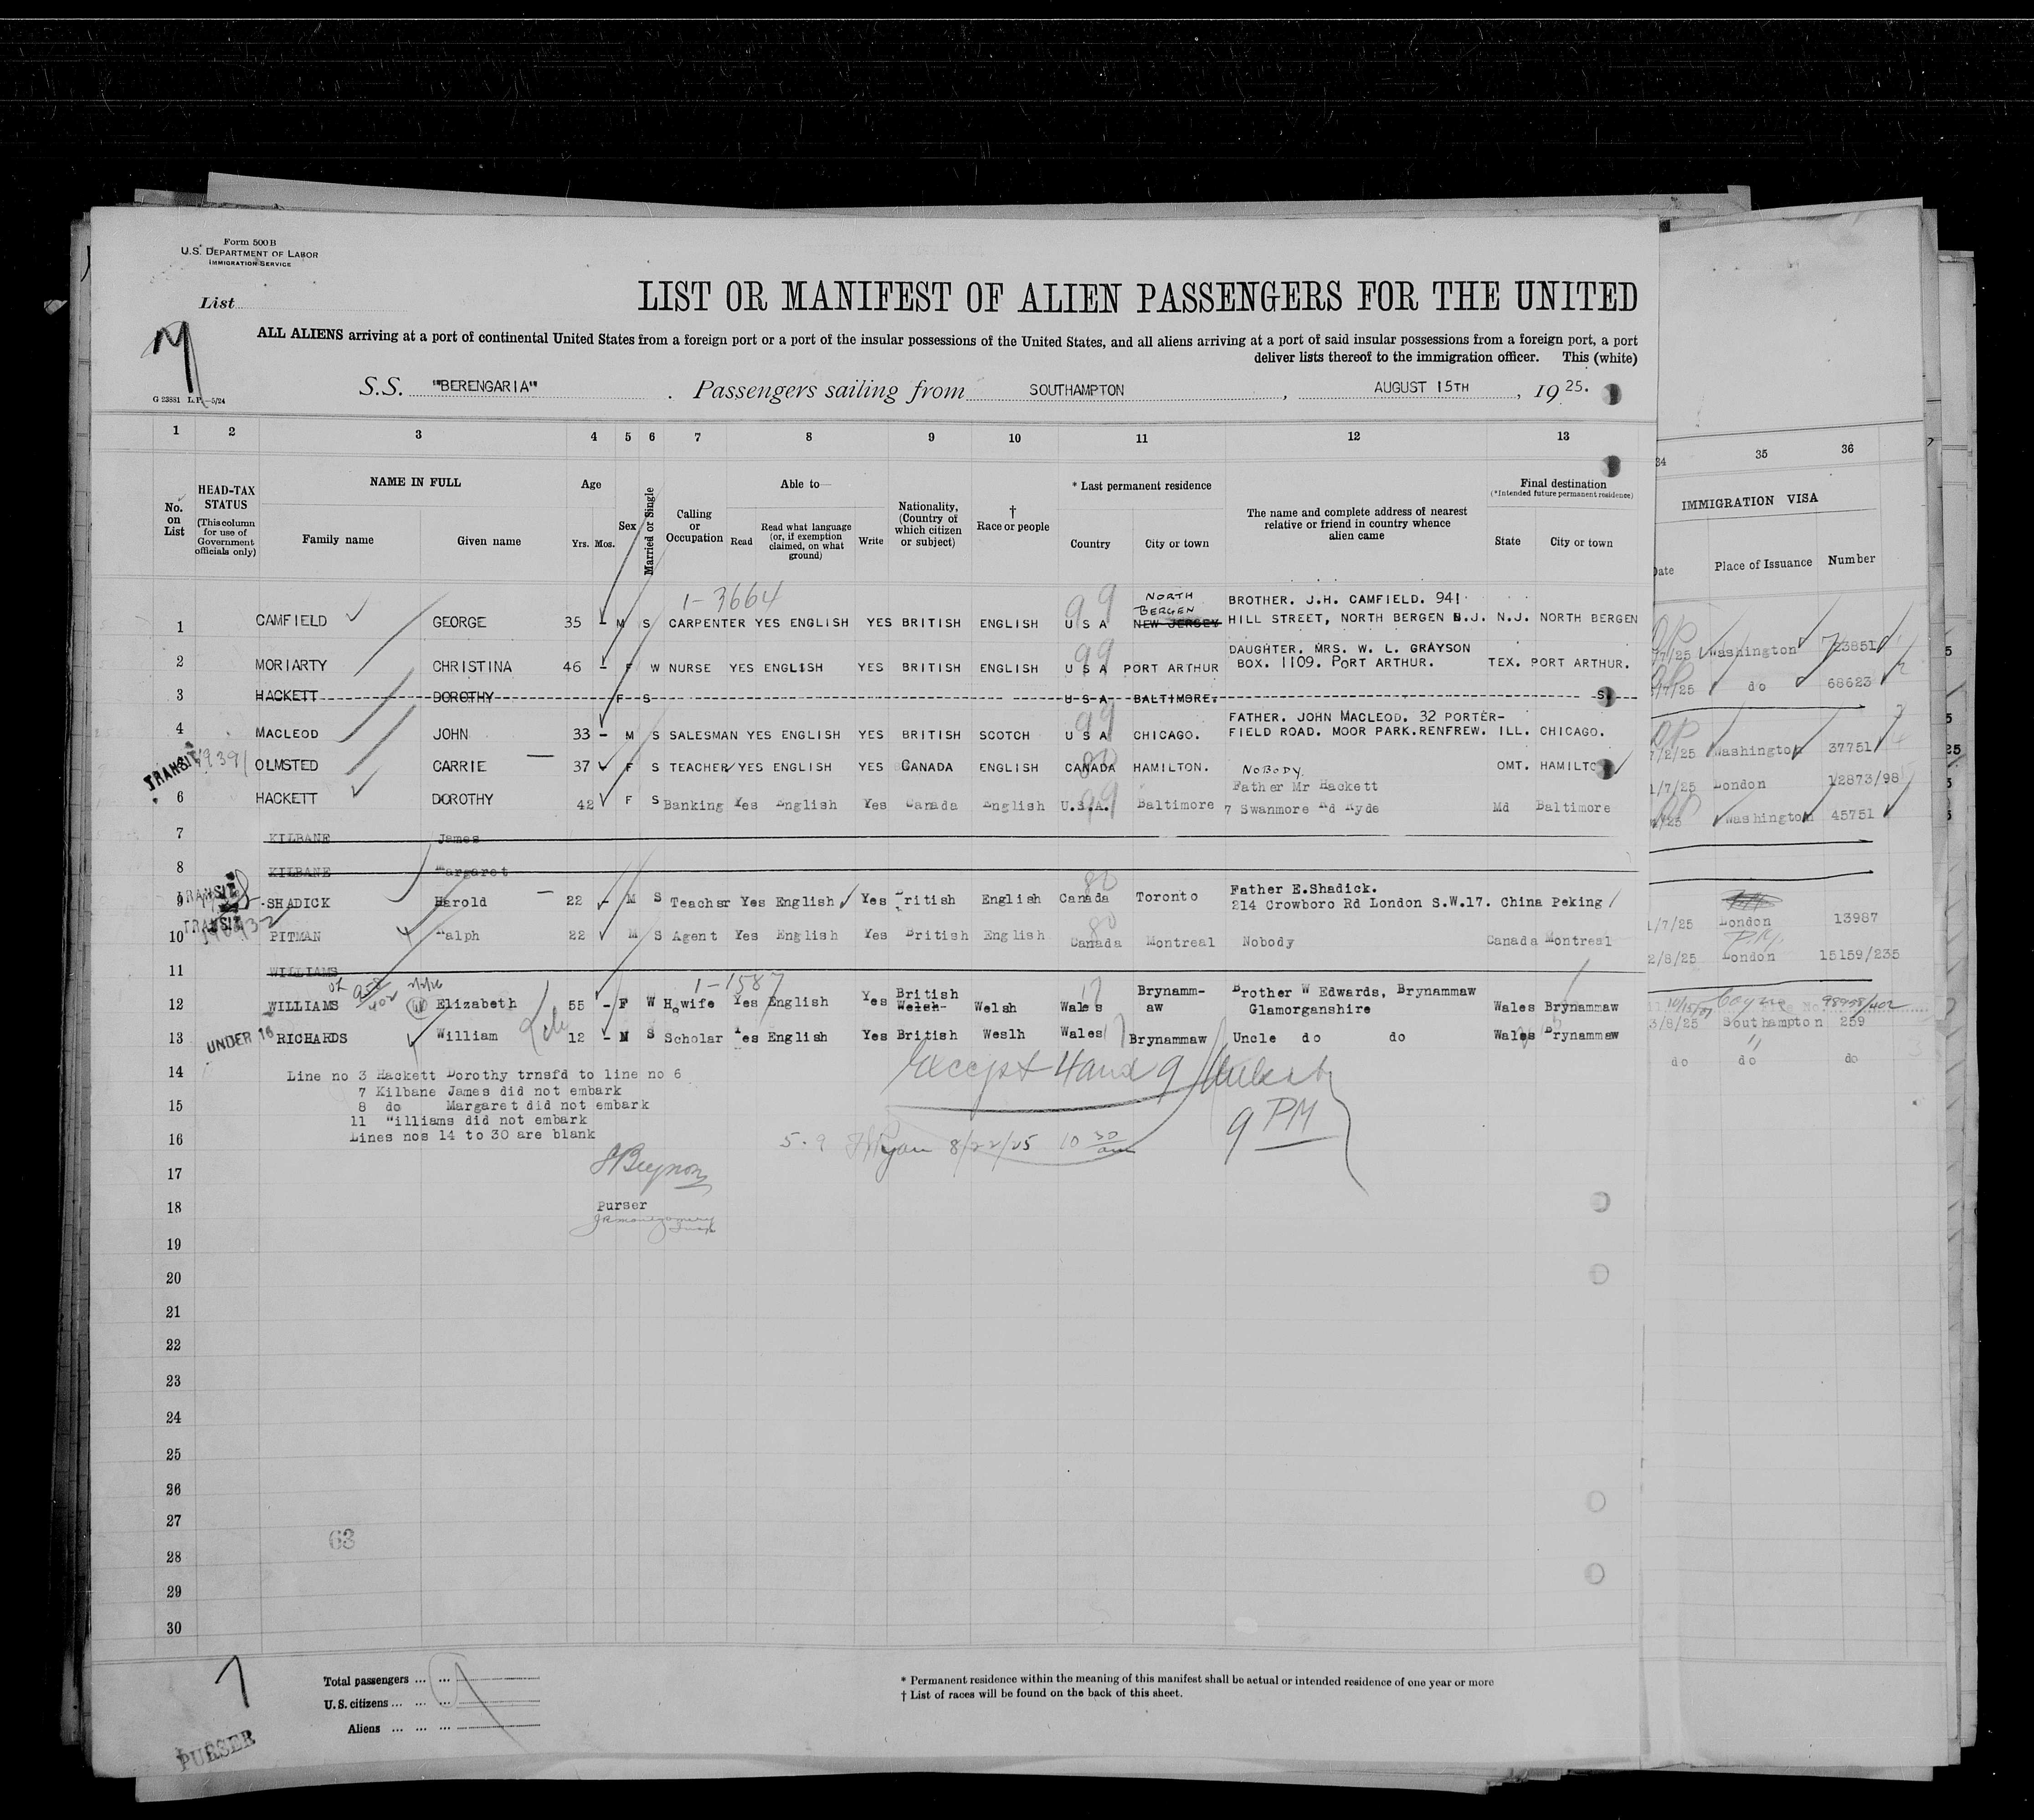 Form 500 B
U.S. DEPARTMENT OF LABOR
IMMIGRATION SERVICE
List
LIST OR MANIFEST OF ALIEN PASSENGERS FOR THE UNITED
ALL ALIENS arriving at a port of continental United States from a foreign port or a port of the insular possessions of the United States, and all aliens arriving at a port of said insular possessions from a foreign port, a port
deliver lists thereof to the immigration officer. This (white)
S.S. "BERENGARIA" . Passengers sailing from SOUTHAMPTON , AUGUST 15TH , 19 25.
G 23881 L.P.—5/24
1 2 3 4 5 6 7 8 9 10 11 12 13
34 35 36
No. on List
HEAD-TAX STATUS (This column for use of Government officials only)
NAME IN FULL
Family name Given name
Age
Yrs. Mos.
Sex
Married or Single
Calling or Occupation
Able to—
Read Read what language (or, if exemption claimed, on what ground) Write
Nationality, (Country of which citizen or subject)
† Race or people
* Last permanent residence
Country City or town
The name and complete address of nearest relative or friend in country whence alien came
Final destination
(*Intended future permanent residence)
State City or town
IMMIGRATION VISA
Date Place of Issuance Number
1-3664
99 NORTH BERGEN BROTHER. J.H. CAMFIELD. 941
1 CAMFIELD GEORGE 35 - M S CARPENTER YES ENGLISH YES BRITISH ENGLISH U S A NEW JERSEY HILL STREET, NORTH BERGEN N.J. N.J. NORTH BERGEN
Washington 723851
99 DAUGHTER. MRS. W. L. GRAYSON
2 MORIARTY CHRISTINA 46 - F W NURSE YES ENGLISH YES BRITISH ENGLISH U S A PORT ARTHUR BOX. 1109. PORT ARTHUR. TEX. PORT ARTHUR.
/7/25 do 68623
3 HACKETT DOROTHY F S U S A BALTIMORE.
99 FATHER. JOHN MACLEOD. 32 PORTER-
4 MACLEOD JOHN 33 - M S SALESMAN YES ENGLISH YES BRITISH SCOTCH U S A CHICAGO. FIELD ROAD. MOOR PARK.RENFREW. ILL. CHICAGO.
/2/25 Washington 37751
TRANSIT OLMSTED CARRIE 37 - F S TEACHER YES ENGLISH YES CANADA ENGLISH CANADA HAMILTON. NOBODY. OMT. HAMILTO
1/7/25 London 12873/98
Father Mr Hackett
6 HACKETT DOROTHY 42 F S Banking Yes English Yes Canada English U.S.A. Baltimore 7 Swanmore Rd Ryde Md Baltimore
Washington 45751
7 KILBANE James
8 KILBANE Margaret
TRANSIT
80 Father E.Shadick.
9 SHADICK Harold 22 - M S Teacher Yes English Yes British English Canada Toronto 214 Crowboro Rd London S.W.17. China Peking
1/7/25 London 13987
TRANSIT
80
10 PITMAN Ralph 22 M S Agent Yes English Yes British English Canada Montreal Nobody Canada Montreal
2/8/25 London 15159/235
11 WILLIAMS
1-1587
12 WILLIAMS Elizabeth 55 - F W H.wife Yes English Yes British Welsh Welsh Wales Brynamm-aw Brother W Edwards, Brynammaw Glamorganshire Wales Brynammaw
3/8/25 Southampton 259
UNDER 16
13 RICHARDS William 12 - M S Scholar Yes English Yes British Weslh Wales Brynammaw Uncle do do Wales Brynammaw
do do do
14 Line no 3 Hackett Dorothy trnsfd to line no 6
7 Kilbane James did not embark
15 8 do Margaret did not embark
11 "illiams did not embark
16 Lines nos 14 to 30 are blank
Except 4 and 9
9 PM
8/22/25 10 30 am
17
18 Purser
19
20
21
22
23
24
25
26
27
63
28
29
30
Total passengers ... ...
U.S. citizens ... ... ...
Aliens ... ... ...
* Permanent residence within the meaning of this manifest shall be actual or intended residence of one year or more
† List of races will be found on the back of this sheet.
PURSER